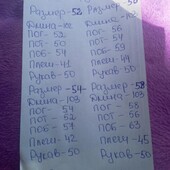 Размер-52
Длина-102
ПОГ-52
ПОТ-50
ПОБ-54
Плечи-41
Рукав-50
Размер-54
Длина-103
ПОГ-54
ПОТ-52
ПОБ-57
Плечи-42
Рукав-50
56
ПОГ-56
ПОТ-54
ПОБ-59
Плечи-44
Рукав-50
Размер-58
Длина-103
ПОГ-58
ПОТ-56
ПОБ-63
Плечи-45
Рукав-50